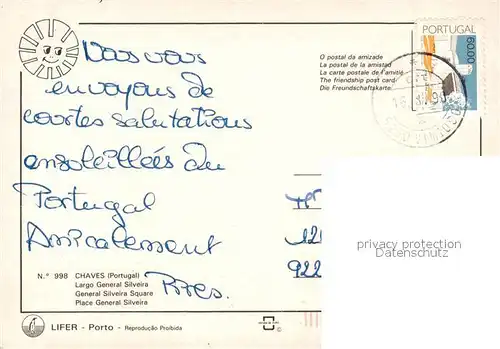 PORTUGAL
60.00
O postal da amizade
La postal de la amistad
La carte postale de l'amitié
The friendship post card
Die Freundschaftskarte
Nous vous
envoyons de
courtes salutations
ensoleillées du
Portugal
Amicalement
N.º 998 CHAVES (Portugal)
Largo General Silveira
General Silveira Square
Place General Silveira
LIFER - Porto - Reprodução Proibida
privacy protection
Datenschutz